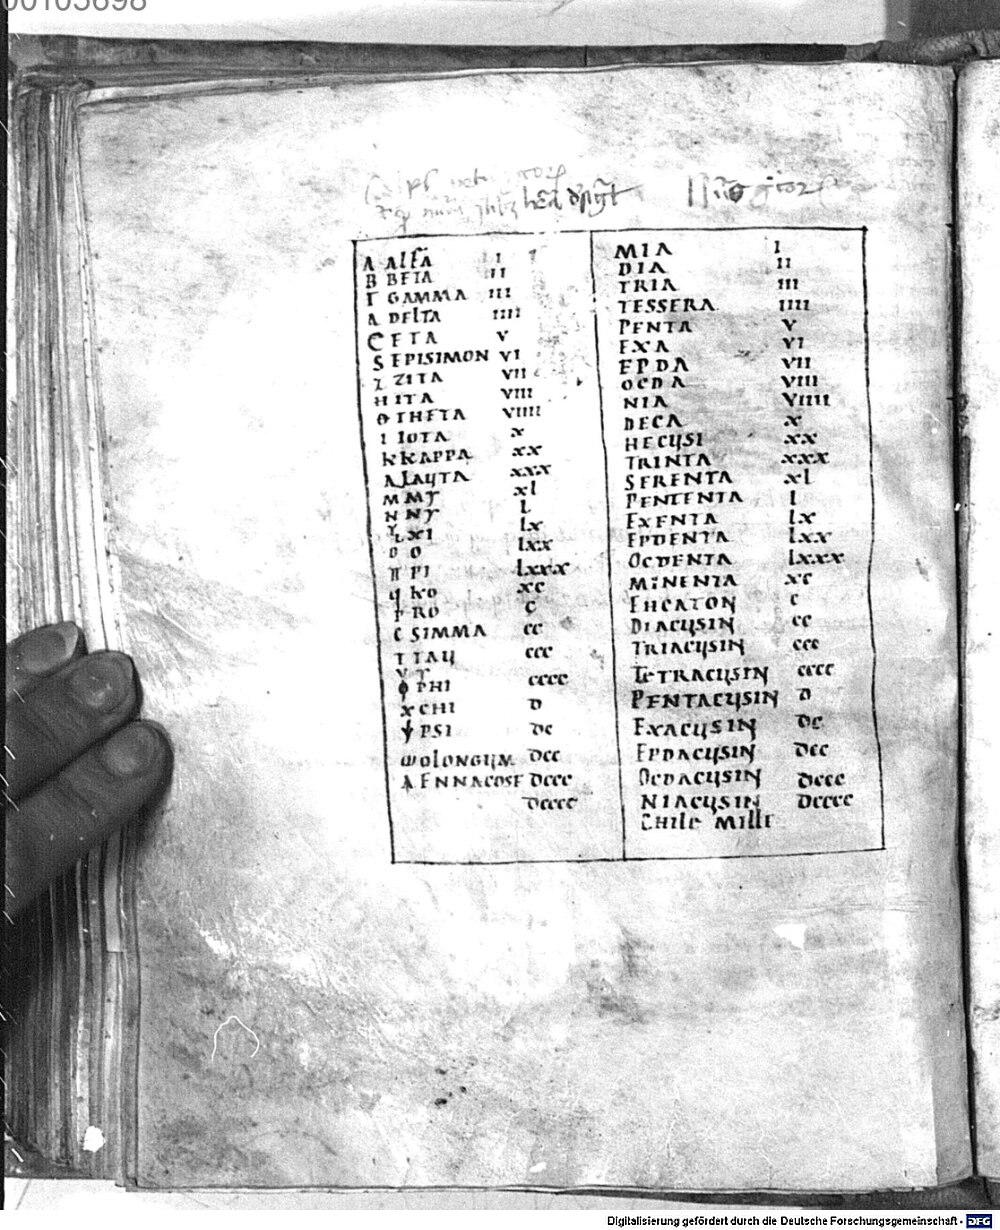 00105698
Α ALFA I
B BETA II
Γ GAMMA III
Δ DELTA IIII
Є ETA V
S EPISIMON VI
Z ZITA VII
H HITA VIII
Θ THETA VIIII
I IOTA X
K KAPPA XX
Λ LAUTA XXX
M MY XL
N NY L
XI LX
O O LXX
Π PI LXXX
ϥ KO XC
Ρ RO C
C SIMMA CC
T TAU CCC
Υ Υ CCCC
Φ PHI
X CHI D
Ψ PSI DC
ω OLONGUM DCC
ENNACOSE DCCC
DCCCC
MIA I
DIA II
TRIA III
TESSERA IIII
PENTA V
EXA VI
EPDA VII
OCDA VIII
NIA VIIII
DECA X
HECUSI XX
TRINTA XXX
SERENTA XL
PENTENTA L
EXENTA LX
EPDENTA LXX
OCDENTA LXXX
MINENTA XC
EHCATON C
DIACUSIN CC
TRIACUSIN CCC
TETRACUSIN CCCC
PENTACUSIN D
EXACUSIN DC
EPDACUSIN DCC
OCDACUSIN DCCC
NIACUSIN DCCCC
CHILE MILLE
Digitalisierung gefördert durch die Deutsche Forschungsgemeinschaft - DFG